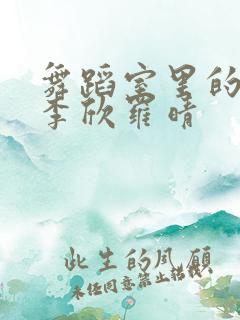 舞蹈室里的
李欣罗晴
此生的风愿
未任同意禁止搭载